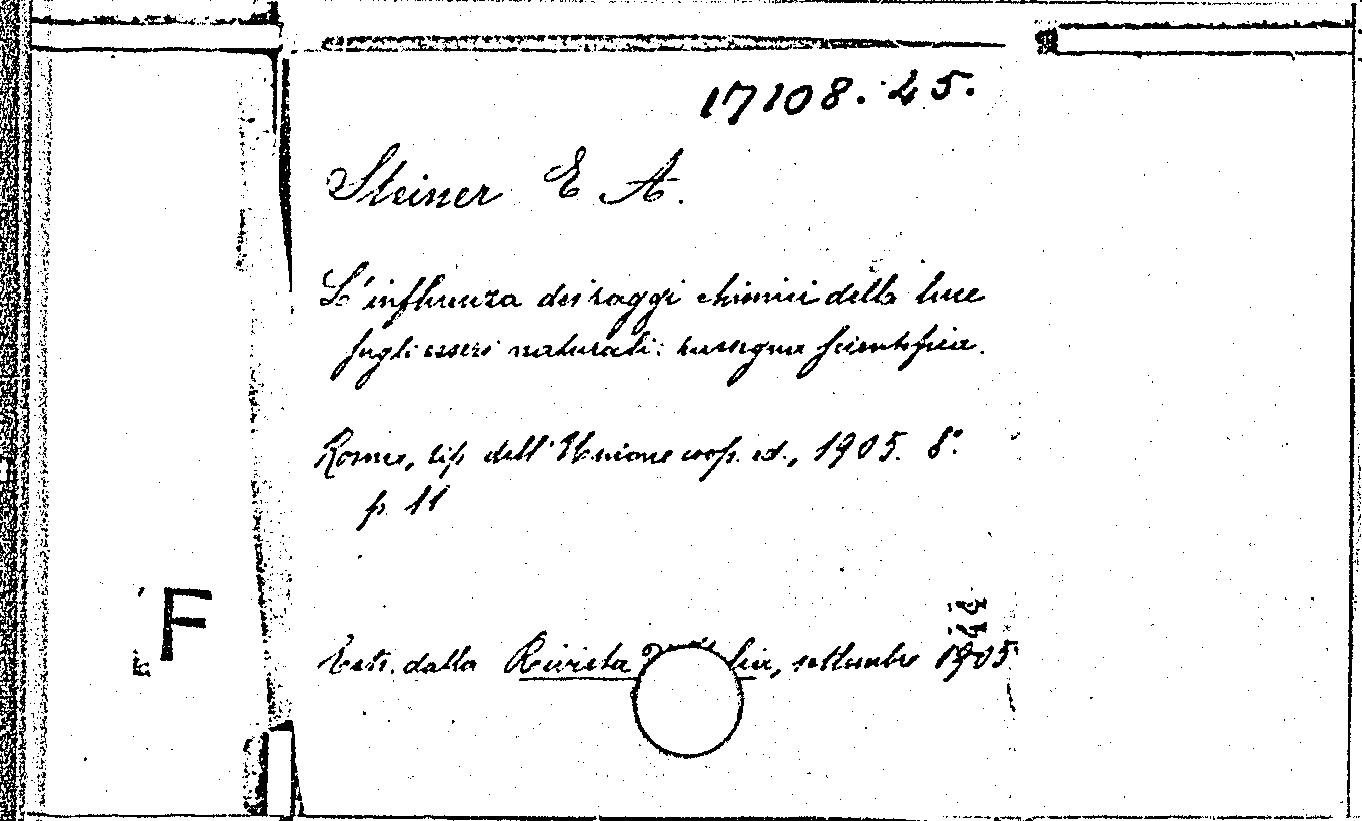 17108.25.
Steiner E A.
L'influenza dei raggi chimici della luce
sugli esseri naturali: rassegna scientifica.
Roma, tip dell'Unione coop. ed., 1905. 8°.
p. 11
F
Estr. dalla Rivista settembre 1905